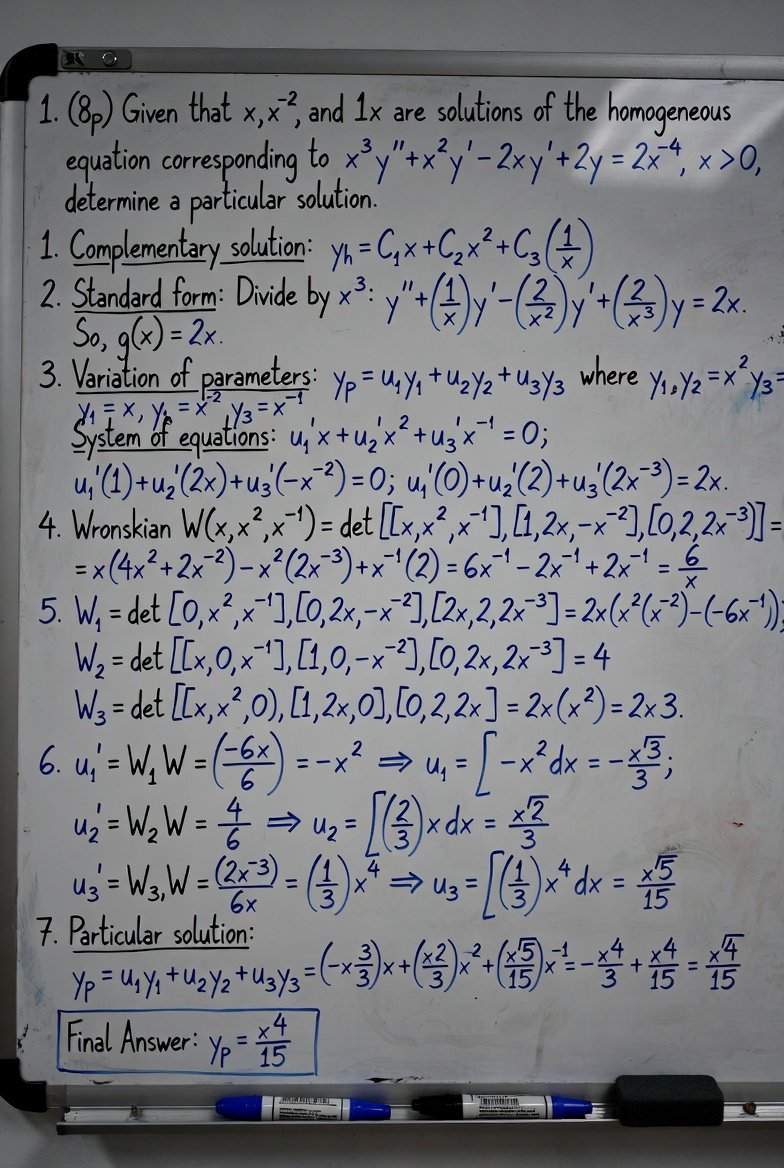 1. (8p) Given that x, x⁻², and 1x are solutions of the homogeneous
equation corresponding to x³y″+x²y′−2xy′+2y = 2x⁻⁴, x>0,
determine a particular solution.
1. Complementary solution: yh = C₁x+C₂x²+C₃(1/x)
2. Standard form: Divide by x³: y″+(1/x)y′−(2/x²)y′+(2/x³)y = 2x.
So, g(x) = 2x.
3. Variation of parameters: yp = u₁y₁+u₂y₂+u₃y₃ where y₁,y₂=x² y₃=
y₁ = x, y₂ = x⁻², y₃ = x⁻¹
System of equations: u₁′x+u₂′x²+u₃′x⁻¹ = 0;
u₁′(1)+u₂′(2x)+u₃′(−x⁻²) = 0; u₁′(0)+u₂′(2)+u₃′(2x⁻³) = 2x.
4. Wronskian W(x,x²,x⁻¹) = det[[x,x²,x⁻¹],[1,2x,−x⁻²],[0,2,2x⁻³)] =
= x(4x²+2x⁻²)−x²(2x⁻³)+x⁻¹(2) = 6x⁻¹−2x⁻¹+2x⁻¹ = 6/x
5. W₁ = det [0,x²,x⁻¹],[0,2x,−x⁻²],[2x,2,2x⁻³] = 2x(x²(x⁻²)−(−6x⁻¹));
W₂ = det[[x,0,x⁻¹],[1,0,−x⁻²],[0,2x,2x⁻³] = 4
W₃ = det[[x,x²,0),[1,2x,0],[0,2,2x] = 2x(x²) = 2x3.
6. u₁′ = W₁W = (−6x/6) = −x² ⇒ u₁ = [−x²dx = −x√3/3;
u₂′ = W₂W = 4/6 ⇒ u₂ = [(2/3)x dx = x√2/3
u₃′ = W₃,W = (2x⁻³)/6x = (1/3)x⁴ ⇒ u₃ = [(1/3)x⁴dx = x√5/15
7. Particular solution:
yp = u₁y₁+u₂y₂+u₃y₃ = (−x3/3)x+(x2/3)x⁻²+(x√5/15)x⁻¹ = −x⁴/3+x⁴/15 = x√4/15
Final Answer: yp = x4/15